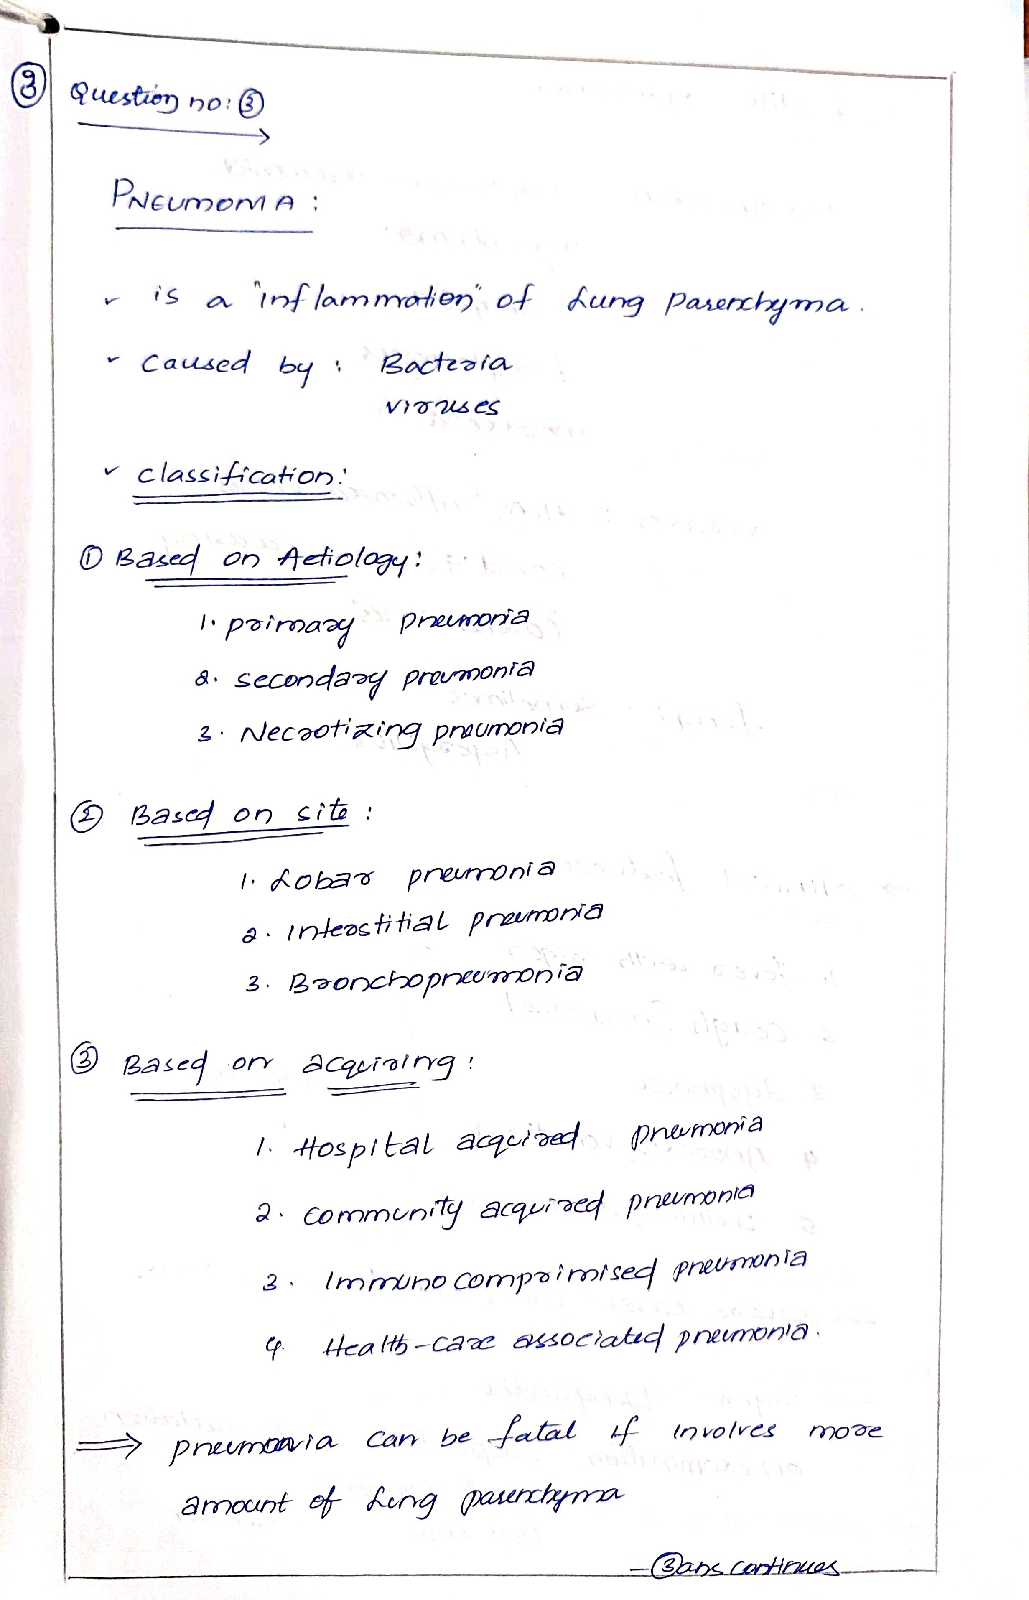 3
Question no: 3
PNEUMONIA :
is a "inflammation" of Lung parenchyma.
caused by : Bacteria
viruses
classification:
① Based on Aetiology:
1. primary pneumonia
2. secondary pneumonia
3. Necrotizing pneumonia
② Based on site :
1. Lobar pneumonia
2. Interstitial pneumonia
3. Bronchopneumonia
③ Based on acquiring :
1. Hospital acquired pneumonia
2. community acquired pneumonia
3. Immuno comprimised pneumonia
4. Health-care associated pneumonia.
⇒ pneumonia can be fatal if involves more
amount of Lung parenchyma
- ③ans continues